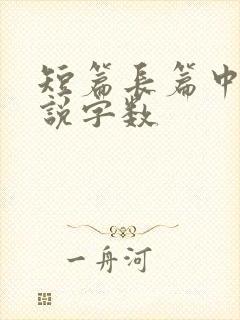 短篇長篇中
說字数
一舟河